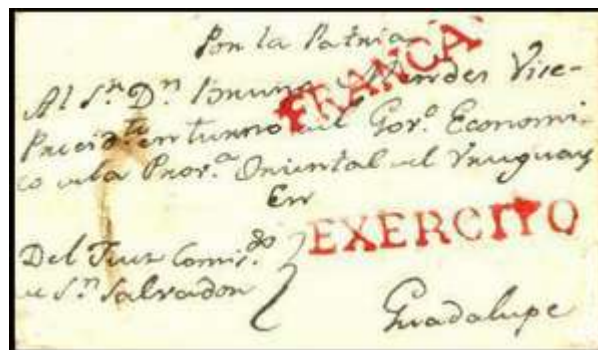 Por la Patria
FRANCA
Al Sr. Dn. Bruno Mendes Vice-
Presidte. en turno del Gov.o Economi-
co de la Prov.a Oriental del Uruguay
En
EXERCITO
Del Juez Comis.do
de Sn. Salvador
Guadalupe